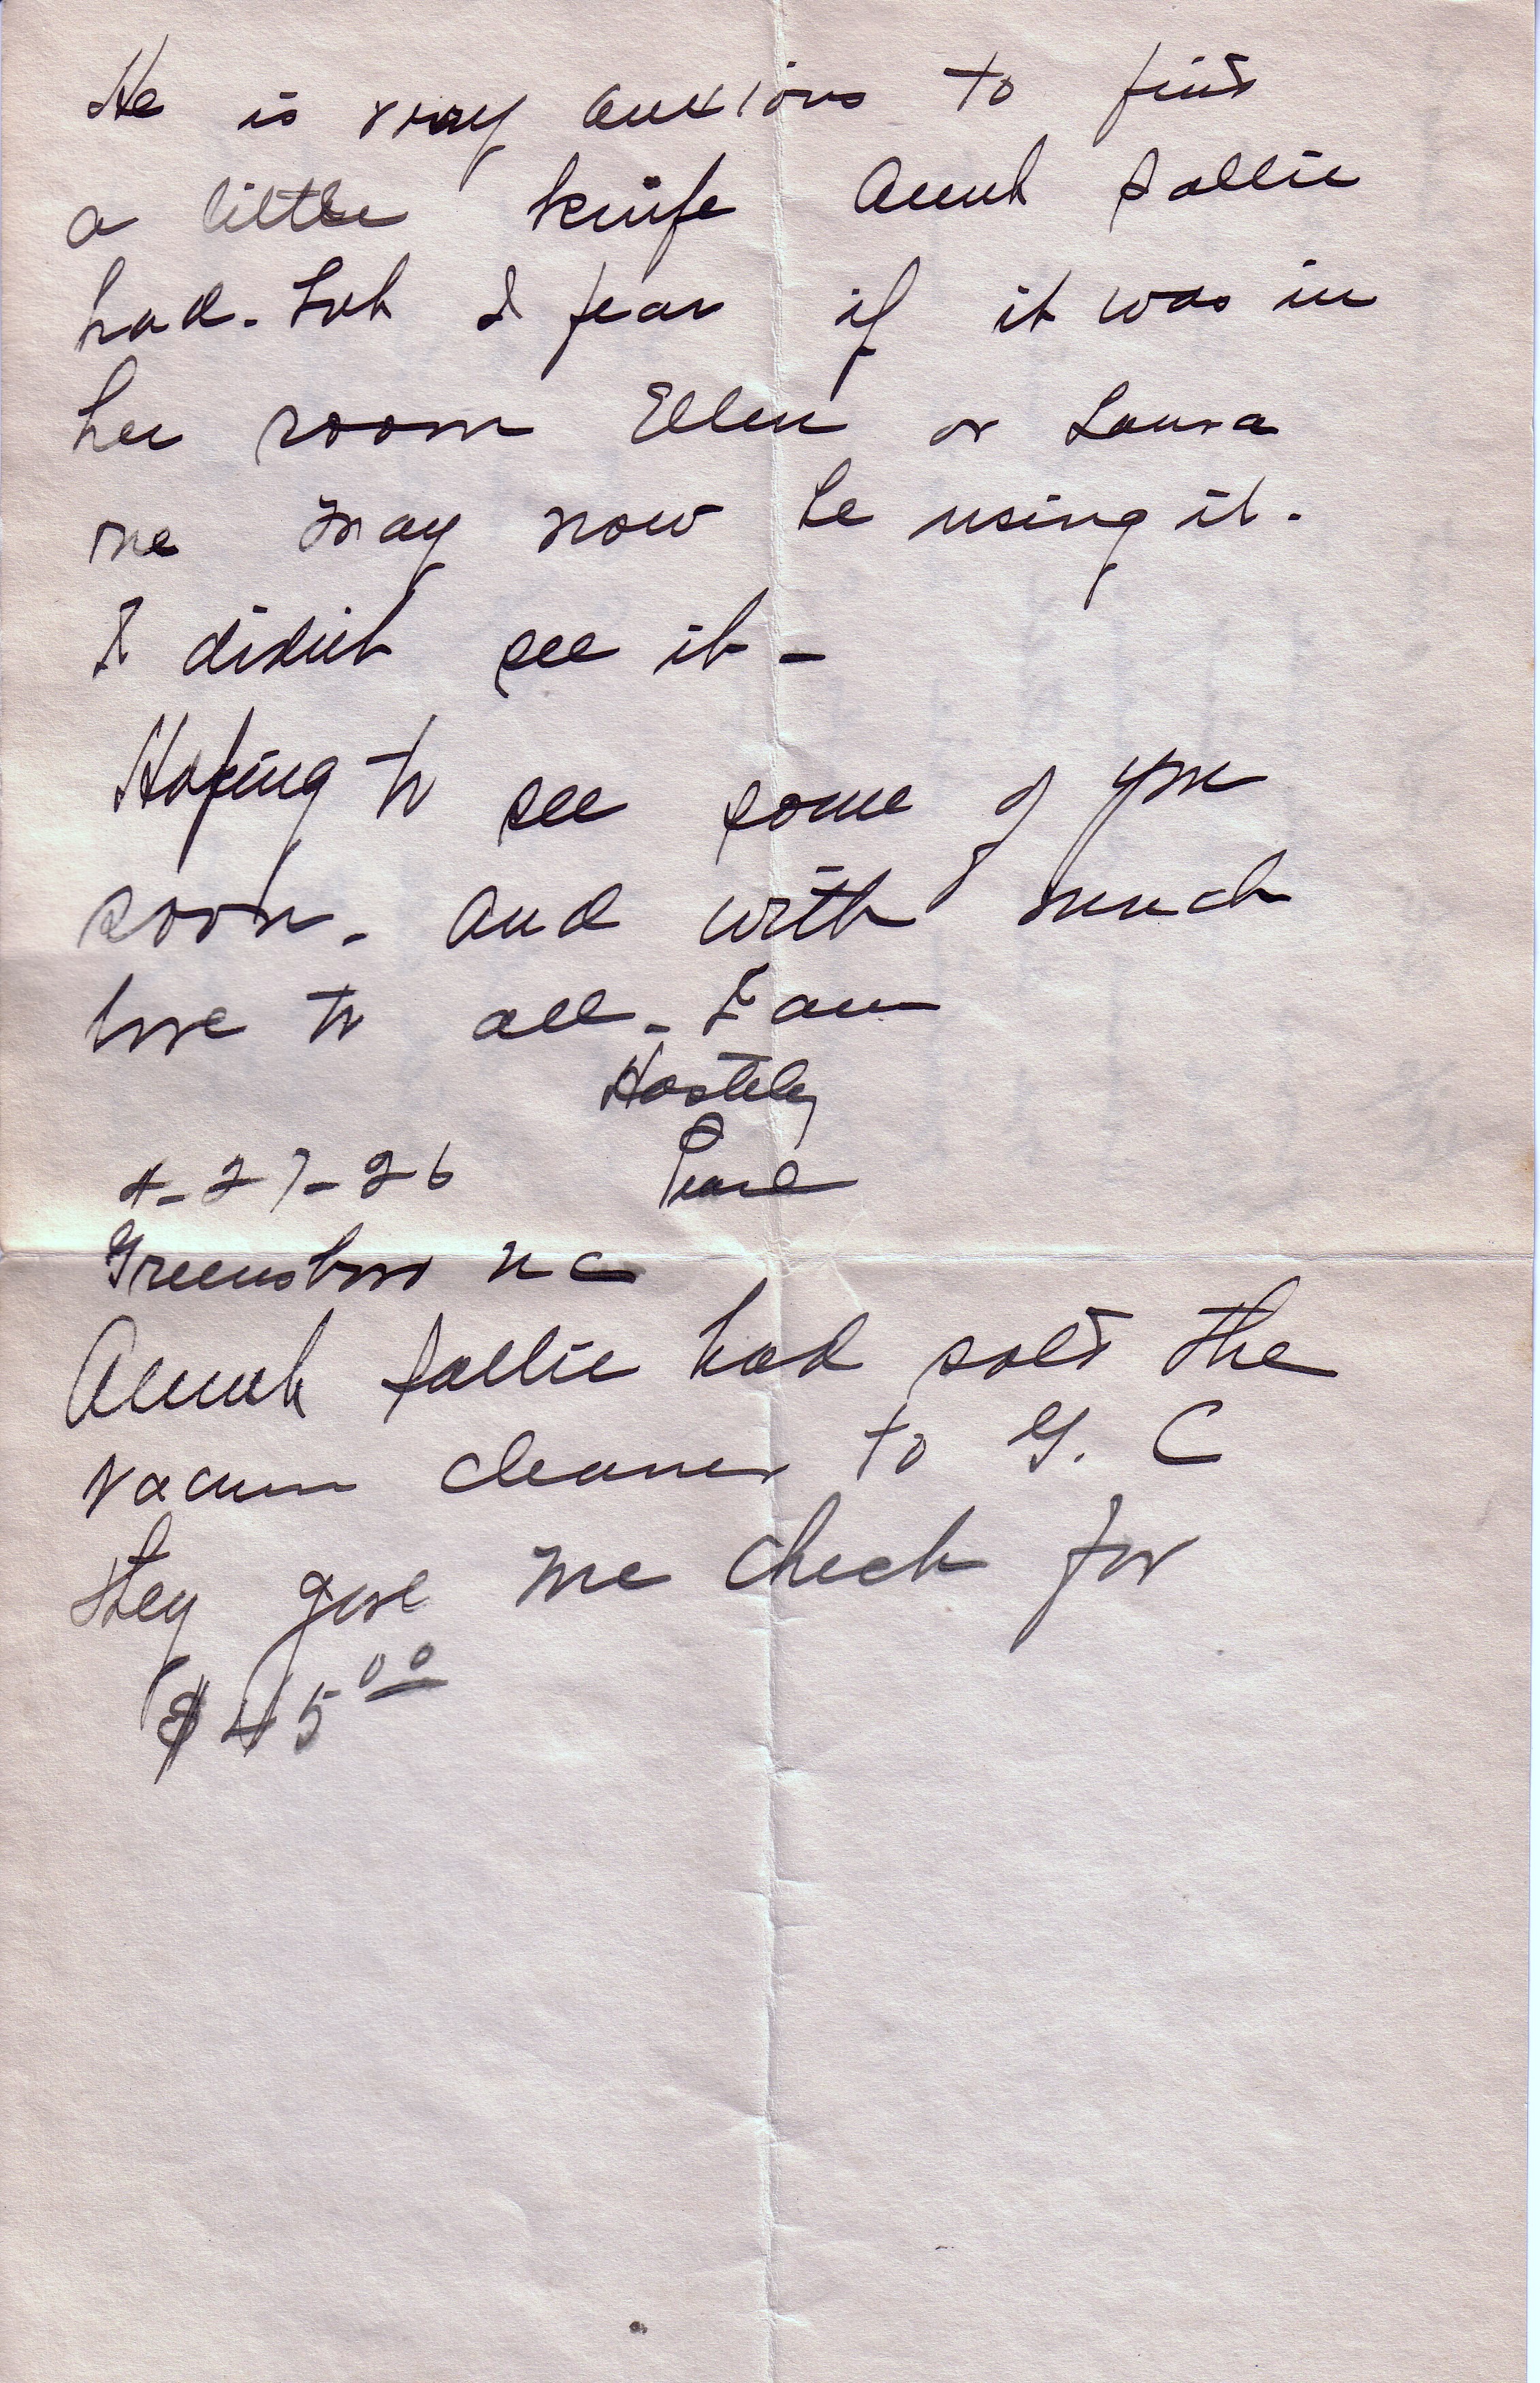 He is very anxious to find
a little knife Aunt Sallie
had. but I fear if it was in
her room Ellen or Laura
one may now be using it.
I didn't see it -
Hoping to see some of you
soon. and with much
love to all - I am
Hastily
Pearl
4-27-26
Greensboro NC
Aunt Sallie had sold the
vacum cleaner to G. C
they gave me check for
$45.00